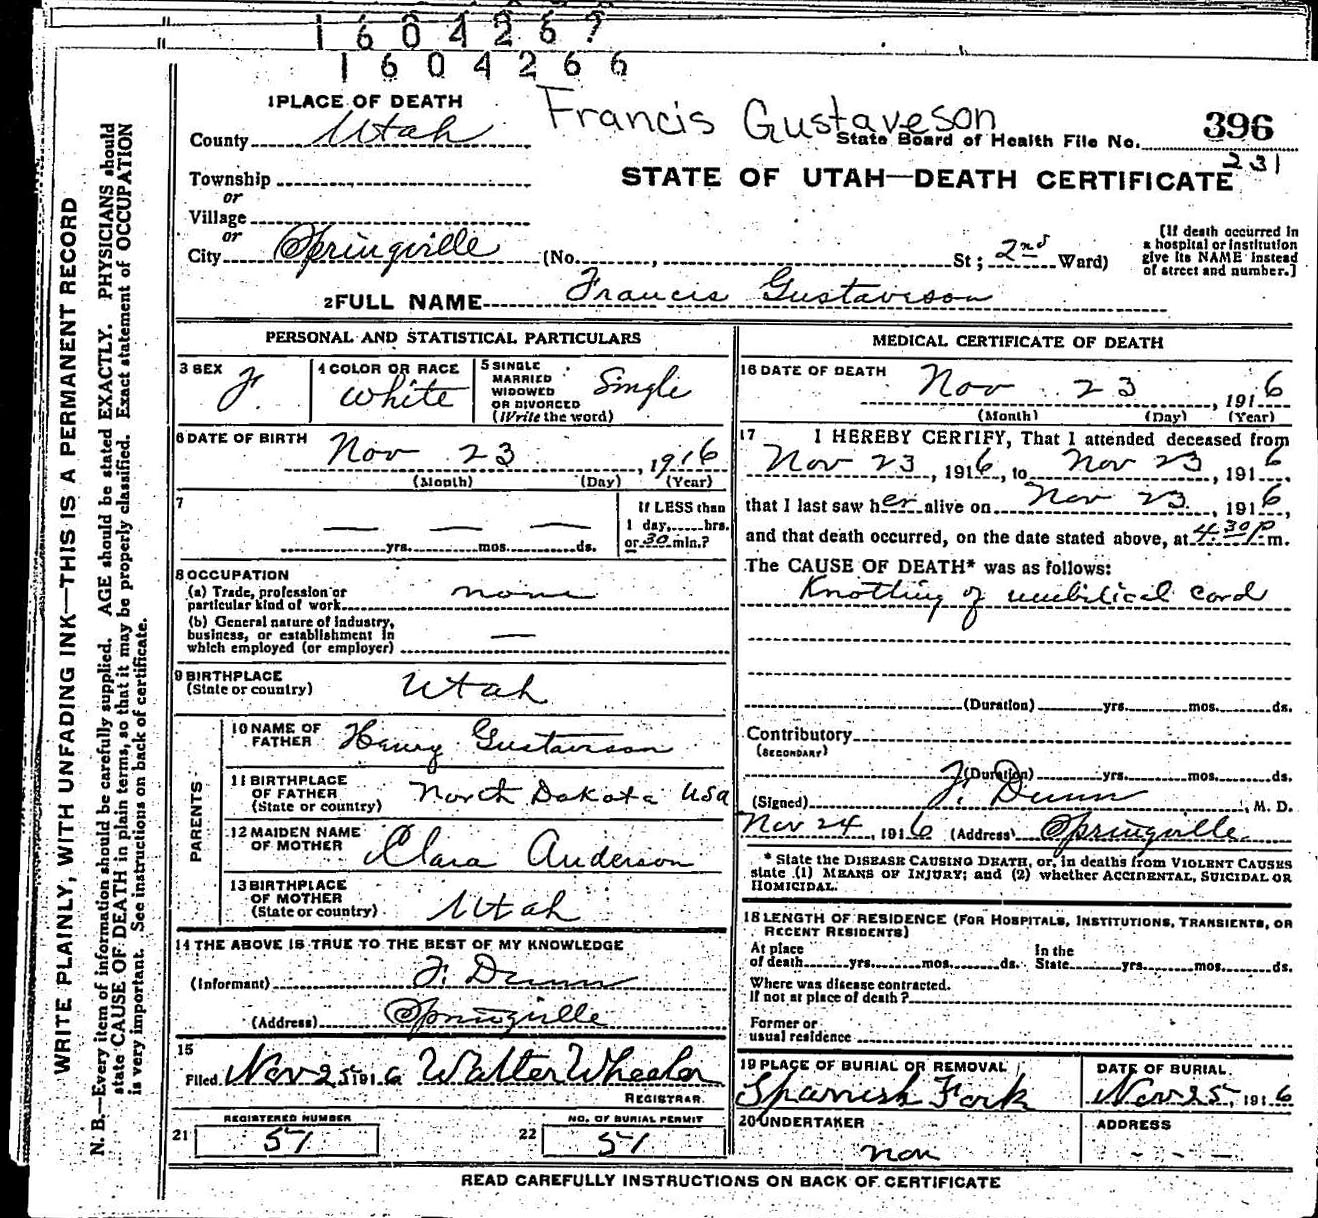 1604267
1604266
1 PLACE OF DEATH
Francis Gustaveson
County Utah
State Board of Health File No. 396
231
Township
or
STATE OF UTAH—DEATH CERTIFICATE
Village
or
City Springville (No. , St; 2nd Ward)
[If death occurred in
a hospital or institution
give its NAME instead
of street and number.]
2 FULL NAME Francis Gustaveson
PERSONAL AND STATISTICAL PARTICULARS
3 SEX F. 4 COLOR OR RACE White 5 SINGLE Single
MARRIED
WIDOWED
OR DIVORCED
(Write the word)
6 DATE OF BIRTH
Nov 23, 1916
(Month) (Day) (Year)
7
— — —
yrs. mos. ds.
If LESS than
1 day, hrs.
or 30 min.?
8 OCCUPATION
(a) Trade, profession or
particular kind of work none
(b) General nature of industry,
business, or establishment in
which employed (or employer) —
9 BIRTHPLACE
(State or country) Utah
PARENTS
10 NAME OF
FATHER Henry Gustaveson
11 BIRTHPLACE
OF FATHER
(State or country) North Dakota USA
12 MAIDEN NAME
OF MOTHER Clara Anderson
13 BIRTHPLACE
OF MOTHER
(State or country) Utah
14 THE ABOVE IS TRUE TO THE BEST OF MY KNOWLEDGE
(Informant) F. Dunn
(Address) Springville
15
Filed Nov 25, 1916 Walter Wheeler
REGISTRAR.
REGISTERED NUMBER
21 57
NO. OF BURIAL PERMIT
22 57
MEDICAL CERTIFICATE OF DEATH
16 DATE OF DEATH
Nov 23, 1916
(Month) (Day) (Year)
17 I HEREBY CERTIFY, That I attended deceased from
Nov 23, 1916, to Nov 23, 1916
that I last saw her alive on Nov 23, 1916,
and that death occurred, on the date stated above, at 4:30 P. m.
The CAUSE OF DEATH* was as follows:
Knotting of umbilical cord
(Duration) yrs. mos. ds.
Contributory
(SECONDARY)
(Duration) yrs. mos. ds.
(Signed) F. Dunn, M. D.
Nov 24, 1916 (Address) Springville
* State the DISEASE CAUSING DEATH, or, in deaths from VIOLENT CAUSES
state (1) MEANS OF INJURY; and (2) whether ACCIDENTAL, SUICIDAL OR
HOMICIDAL.
18 LENGTH OF RESIDENCE (FOR HOSPITALS, INSTITUTIONS, TRANSIENTS, OR
RECENT RESIDENTS)
At place In the
of death yrs. mos. ds. State yrs. mos. ds.
Where was disease contracted.
If not at place of death?
Former or
usual residence
19 PLACE OF BURIAL OR REMOVAL
Spanish Fork
DATE OF BURIAL.
Nov 25, 1916
20 UNDERTAKER
non
ADDRESS
- - - -
READ CAREFULLY INSTRUCTIONS ON BACK OF CERTIFICATE
WRITE PLAINLY, WITH UNFADING INK—THIS IS A PERMANENT RECORD
N. B.—Every item of information should be carefully supplied. AGE should be stated EXACTLY. PHYSICIANS should
state CAUSE OF DEATH in plain terms, so that it may be properly classified. Exact statement of OCCUPATION
is very important. See instructions on back of certificate.